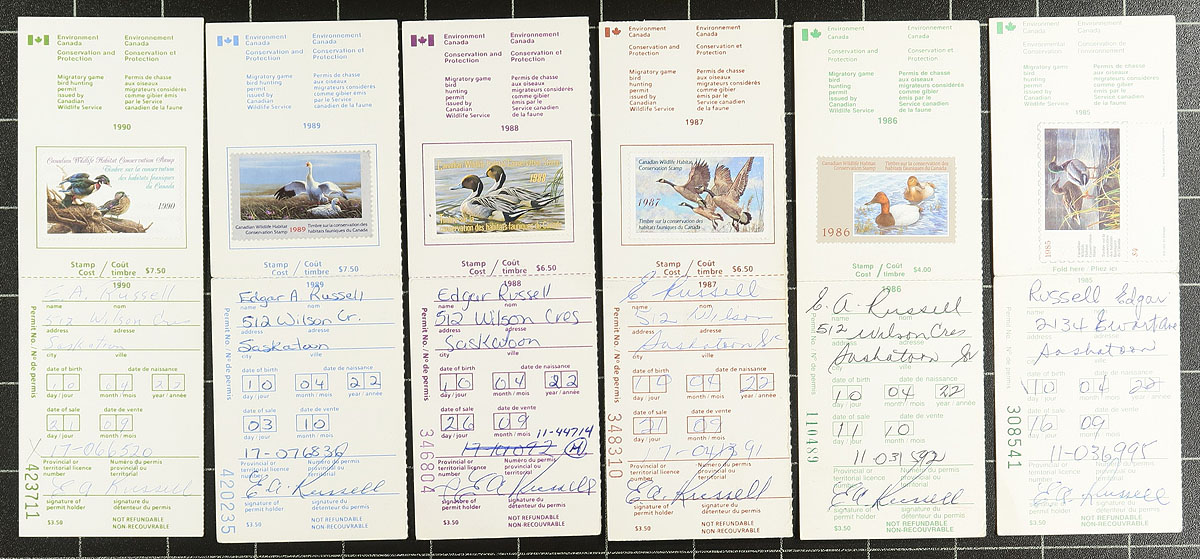 Environment Canada Environnement Canada
Conservation and Protection Conservation et Protection
Migratory game Permis de chasse
bird aux oiseaux
hunting migrateurs considérés
permit comme gibier
issued by émis par le
Canadian Service canadien
Wildlife Service de la faune
1990
Canadian Wildlife Habitat Conservation Stamp
Timbre sur la conservation
des habitats fauniques
du Canada
1990
Stamp Cost / Coût timbre $7.50
1990
E A Russell
name nom
512 Wilson Cres
address adresse
Saskatoon
city ville
date of birth date de naissance
10 04 22
day / jour month / mois year / année
date of sale date de vente
21 09
day / jour month / mois
Provincial or territorial licence number
Numéro du permis provincial ou territorial
E A Russell
signature of permit holder signature du détenteur du permis
$3.50 NOT REFUNDABLE
NON-RECOUVRABLE
Permit No. / Nº de permis
423711
Environment Canada Environnement Canada
Conservation and Protection Conservation et Protection
Migratory game Permis de chasse
bird aux oiseaux
hunting migrateurs considérés
permit comme gibier
issued by émis par le
Canadian Service canadien
Wildlife Service de la faune
1989
Canadian Wildlife Habitat Conservation Stamp 1989 Timbre sur la conservation des habitats fauniques du Canada
Stamp Cost / Coût timbre $7.50
1989
Edgar A Russell
name nom
512 Wilson Cr.
address adresse
Saskatoon
city ville
date of birth date de naissance
10 04 22
day / jour month / mois year / année
date of sale date de vente
03 10
day / jour month / mois
17-076836
Provincial or territorial licence number
Numéro du permis provincial ou territorial
E.A. Russell
signature of permit holder signature du détenteur du permis
$3.50 NOT REFUNDABLE
NON-RECOUVRABLE
Permit No. / Nº de permis
420235
Environment Canada Environnement Canada
Conservation and Protection Conservation et Protection
Migratory game Permis de chasse
bird aux oiseaux
hunting migrateurs considérés
permit comme gibier
issued by émis par le
Canadian Service canadien
Wildlife Service de la faune
1988
1988
Stamp Cost / Coût timbre $6.50
1988
Edgar Russell
name nom
512 Wilson Cres
address adresse
Saskatoon
city ville
date of birth date de naissance
10 04 22
day / jour month / mois year / année
date of sale date de vente
26 09
day / jour month / mois
11-44714
Provincial or territorial licence number
Numéro du permis provincial ou territorial
E A Russell
signature of permit holder signature du détenteur du permis
$3.50 NOT REFUNDABLE
NON-RECOUVRABLE
Permit No. / Nº de permis
346804
Environment Canada Environnement Canada
Conservation and Protection Conservation et Protection
Migratory game Permis de chasse
bird aux oiseaux
hunting migrateurs considérés
permit comme gibier
issued by émis par le
Canadian Service canadien
Wildlife Service de la faune
1987
Canadian Wildlife Habitat Conservation Stamp
1987
Timbre sur la conservation des habitats fauniques du Canada
Stamp Cost / Coût timbre $6.50
1987
E Russell
name nom
512 Wilson
address adresse
Saskatoon Sk
city ville
date of birth date de naissance
10 04 22
day / jour month / mois year / année
date of sale date de vente
21 09
day / jour month / mois
Provincial or territorial licence number
Numéro du permis provincial ou territorial
E.A. Russell
signature of permit holder signature du détenteur du permis
$3.50 NOT REFUNDABLE
NON-RECOUVRABLE
Permit No. / Nº de permis
348310
Environment Canada Environnement Canada
Conservation and Protection Conservation et Protection
Migratory game Permis de chasse
bird aux oiseaux
hunting migrateurs considérés
permit comme gibier
issued by émis par le
Canadian Service canadien
Wildlife Service de la faune
1986
Canadian Wildlife Habitat Conservation Stamp Timbre sur la conservation des habitats fauniques du Canada
1986
Stamp Cost / Coût timbre $4.00
1986
E. A. Russell
name nom
512 Wilson Cres
address adresse
Saskatoon Sk
city ville
date of birth date de naissance
10 04 22
day / jour month / mois year / année
date of sale date de vente
11 10
day / jour month / mois
Provincial or territorial licence number
Numéro du permis provincial ou territorial
E.A. Russell
signature of permit holder signature du détenteur du permis
$3.50 NOT REFUNDABLE
NON-RECOUVRABLE
Permit No. / Nº de permis
110489
Environment Canada Environnement Canada
Conservation and Protection Conservation de l'environnement
Migratory game Permis de chasse
bird aux oiseaux
hunting migrateurs considérés
permit comme gibier
issued by émis par le
Canadian Service canadien
Wildlife Service de la faune
1985
1985
$4
Fold here Pliez ici
1985
Russell Edgar
name nom
2134 Ewart Ave
address adresse
Saskatoon
city ville
date of birth date de naissance
10 04 22
day / jour month / mois year / année
date of sale date de vente
16 09
day / jour month / mois
11-036995
Provincial or territorial licence number
Numéro du permis provincial ou territorial
E A Russell
signature of permit holder signature du détenteur du permis
$3.50 NOT REFUNDABLE
NON-RECOUVRABLE
Permit No. / Nº de permis
308541